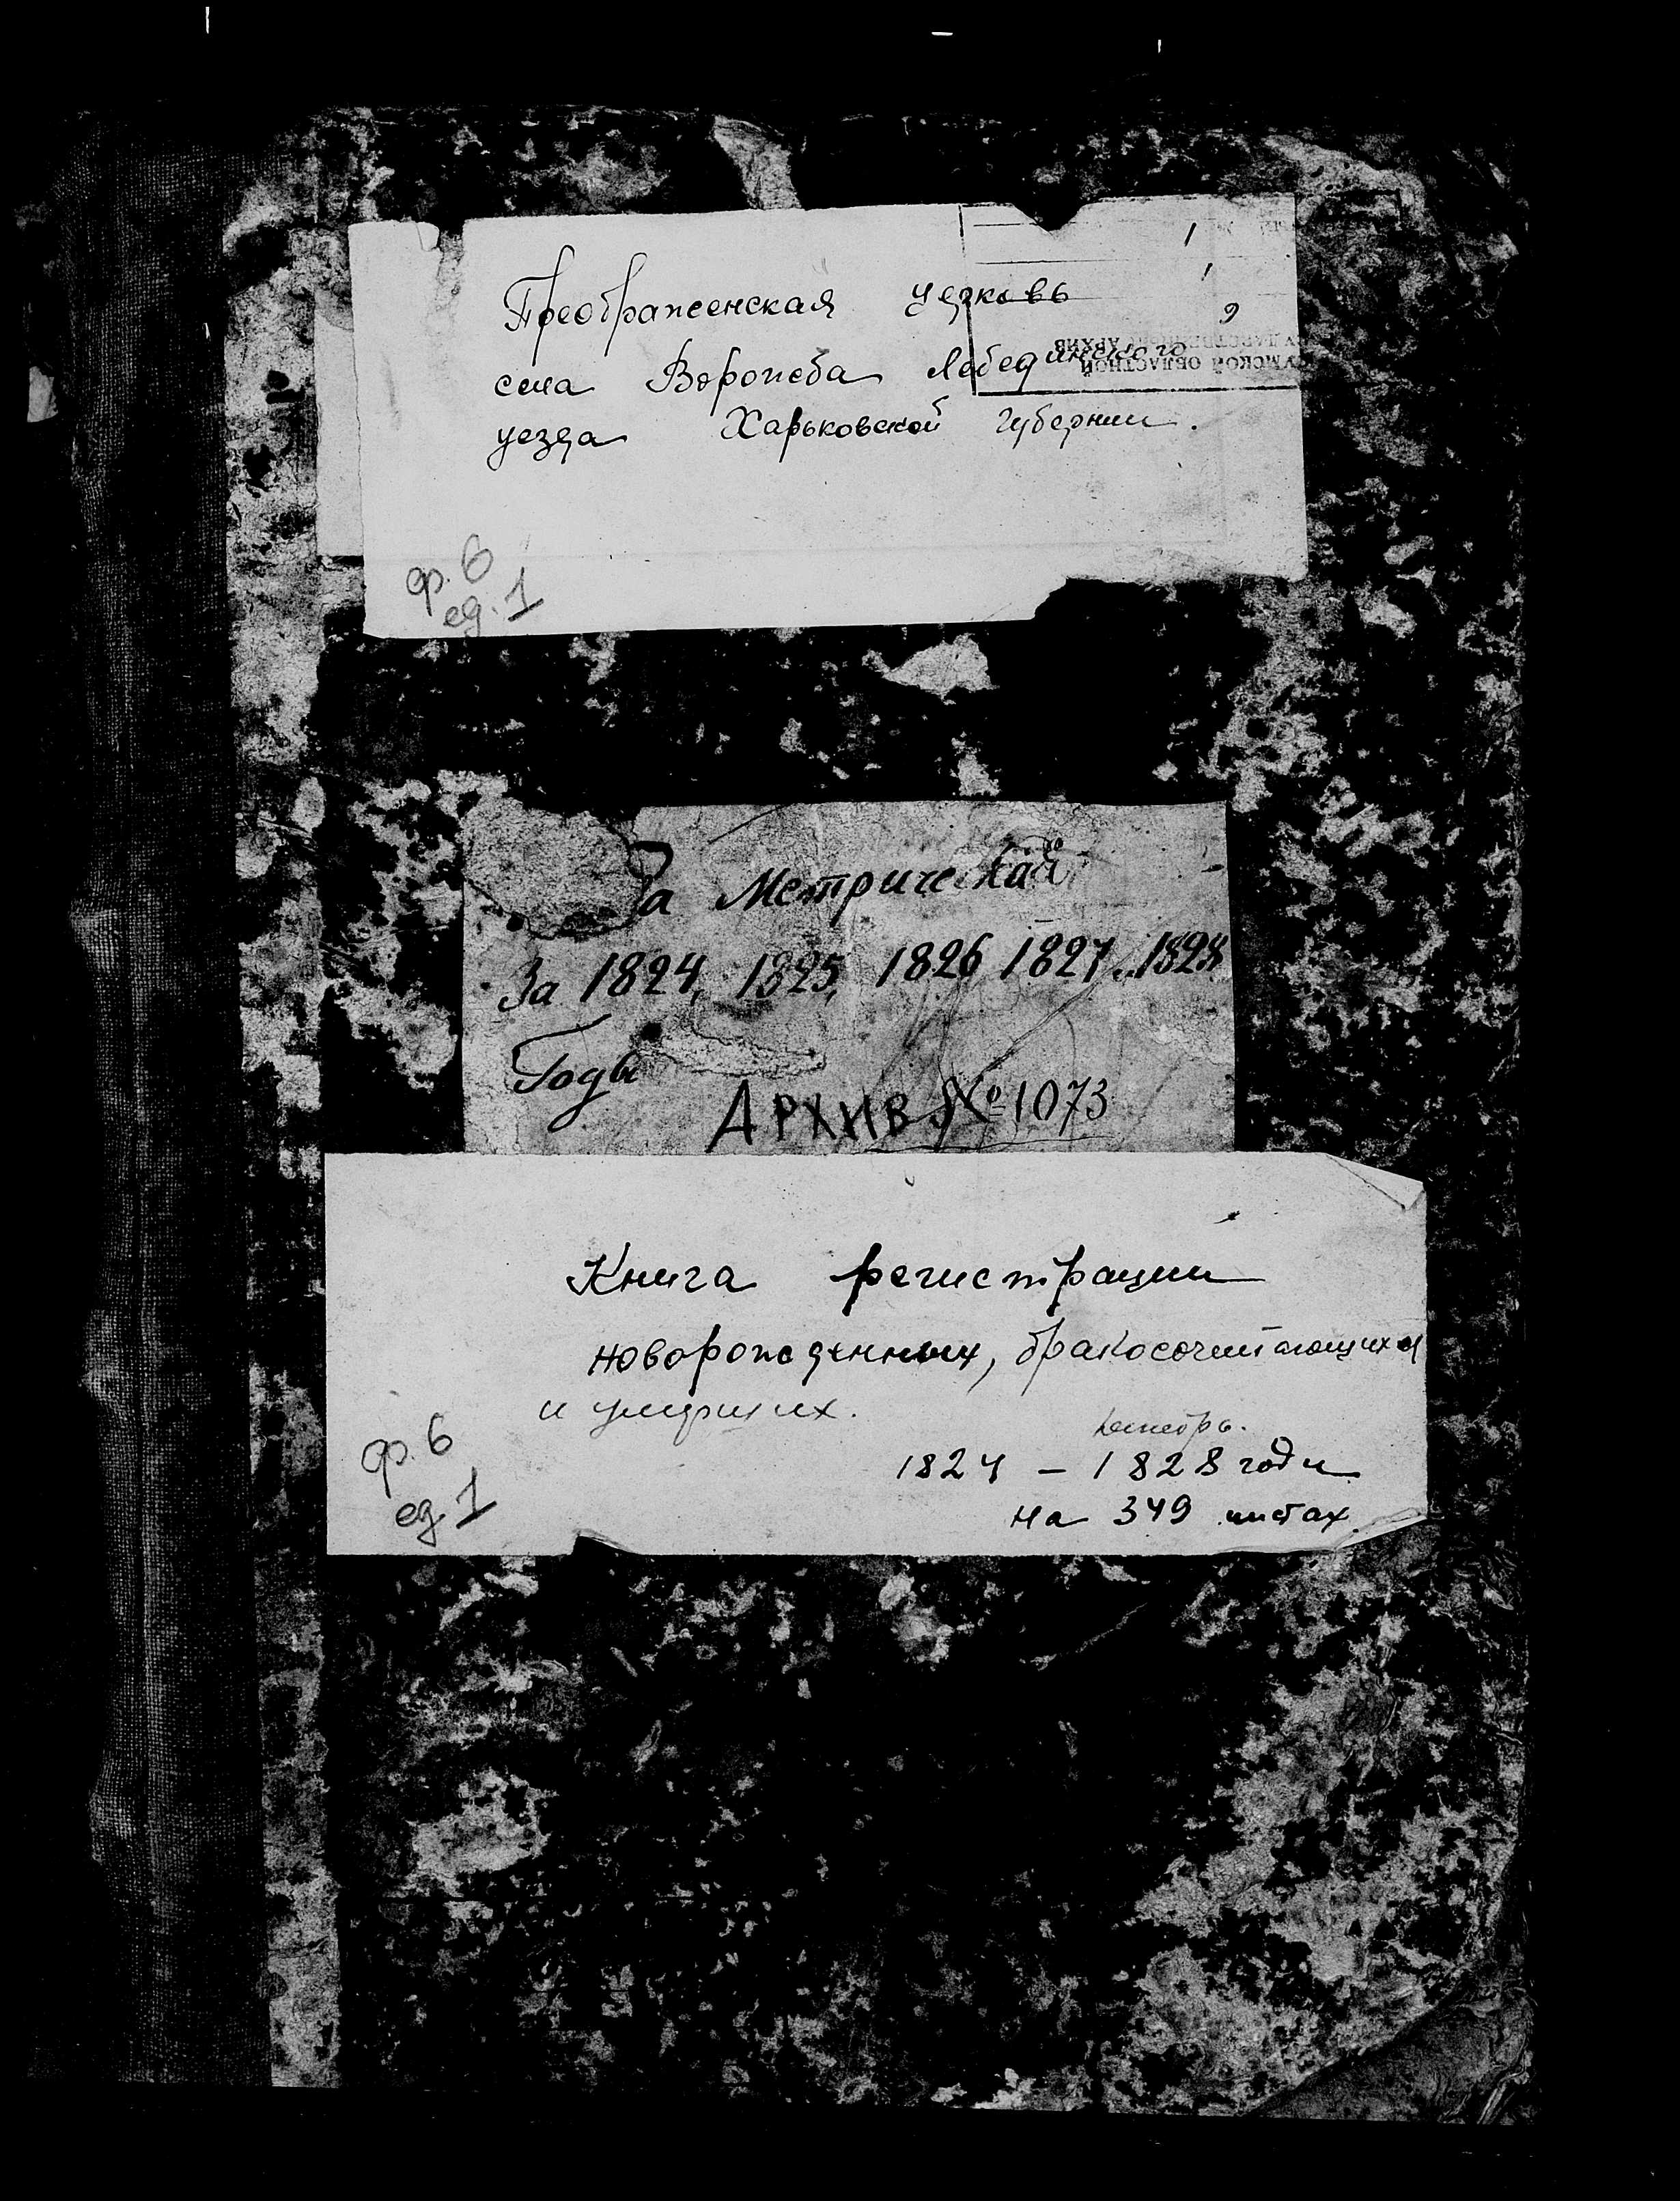 1
1
9
Преображенская церковь
СУМСКОЙ ОБЛАСТНОЙ
АРХИВ
села Ворожба Лебединского
уезда Харьковской губернии.
ф. 6
ед. 1
Метрическая
За 1824, 1825, 1826 1827 1828
Годы
АРХИВ № 1073
Книга регистрации
новорожденных, бракосочитающихся
и умерших.
1824 – 1828 годы
на 349 листах
ф. 6
ед 1